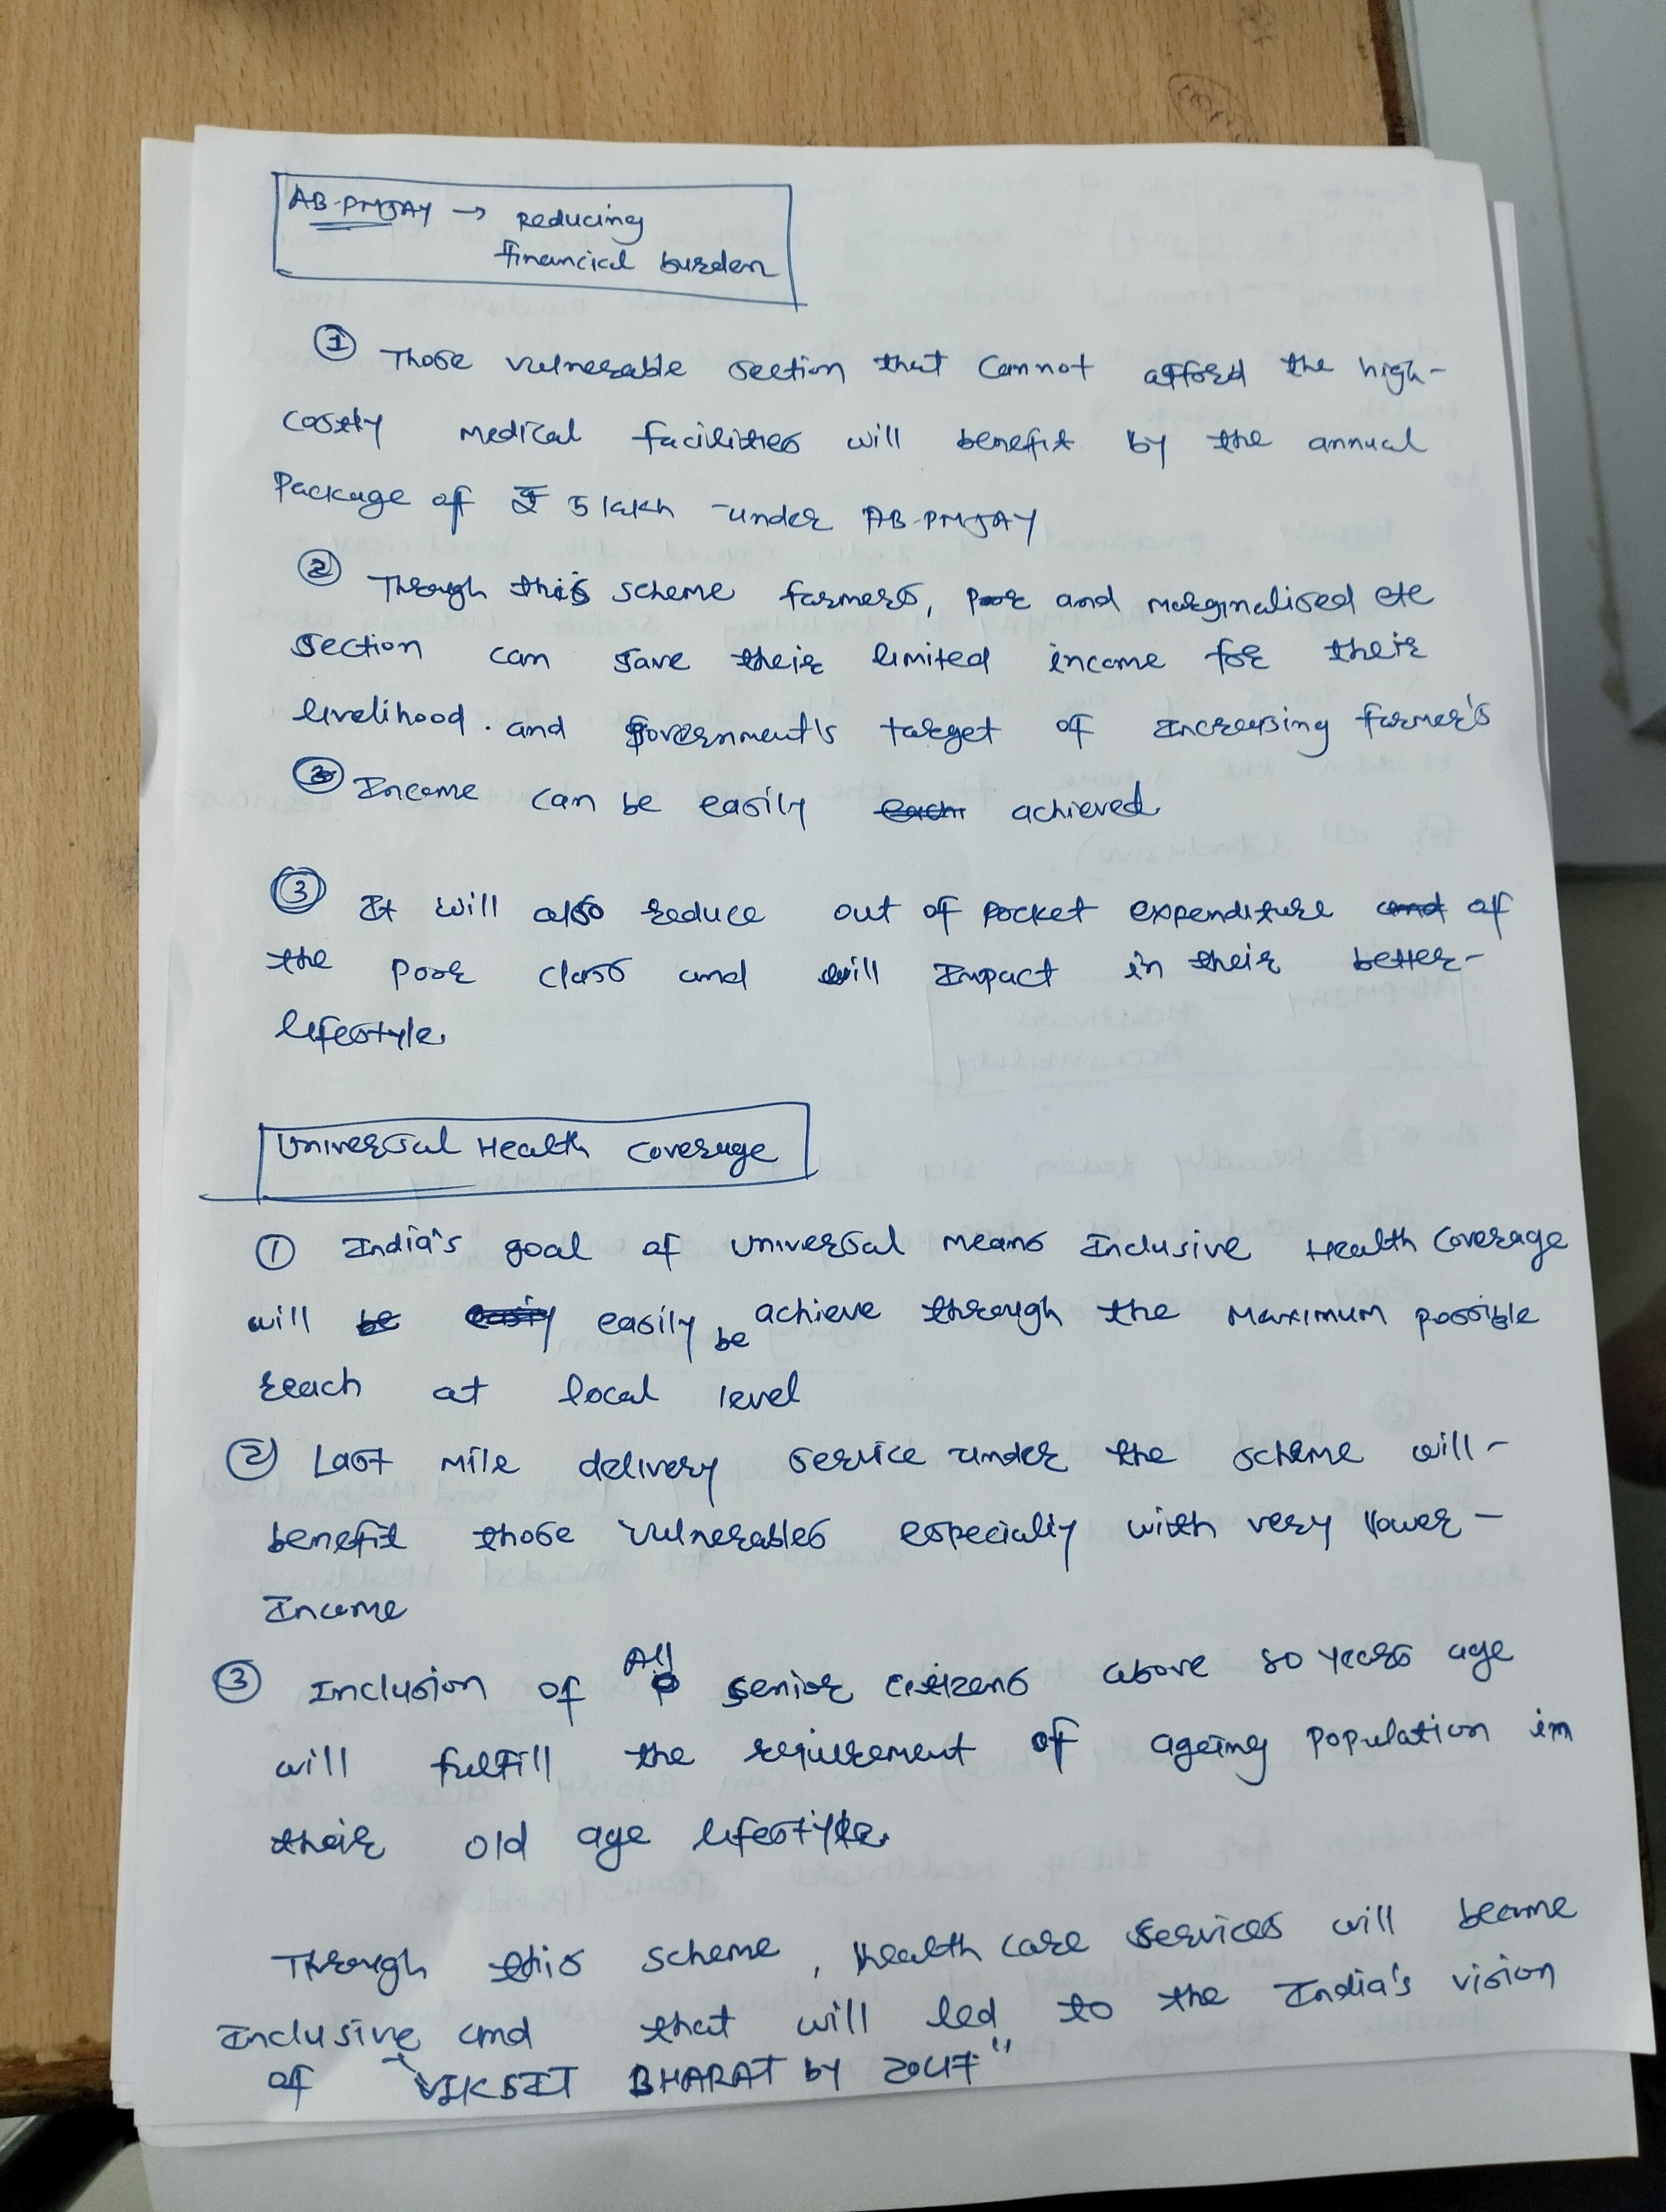 AB-PMJAY → Reducing
financial burden
① Those vulnerable section that cannot afford the high-
costly medical facilities will benefit by the annual
Package of ₹ 5 lakh under AB-PMJAY
② Through this scheme farmers, poor and marginalised etc
section can save their limited income for their
livelihood. and government's target of increasing farmer's
Income can be easily achieved
③ It will also reduce out of pocket expenditure of
the poor class and will Impact in their better-
lifestyle.
Universal Health Coverage
① India's goal of universal means Inclusive Health Coverage
will easily be achieve through the maximum possible
reach at local level
② Last mile delivery service under the scheme will-
benefit those vulnerables especially with very lower-
Income
③ Inclusion of All senior citizens above 80 years age
will fulfill the requirement of ageing population in
their old age lifestyle.
Through this scheme, Health care services will become
Inclusive and that will led to the India's vision
of "VIKSIT BHARAT by 2047"